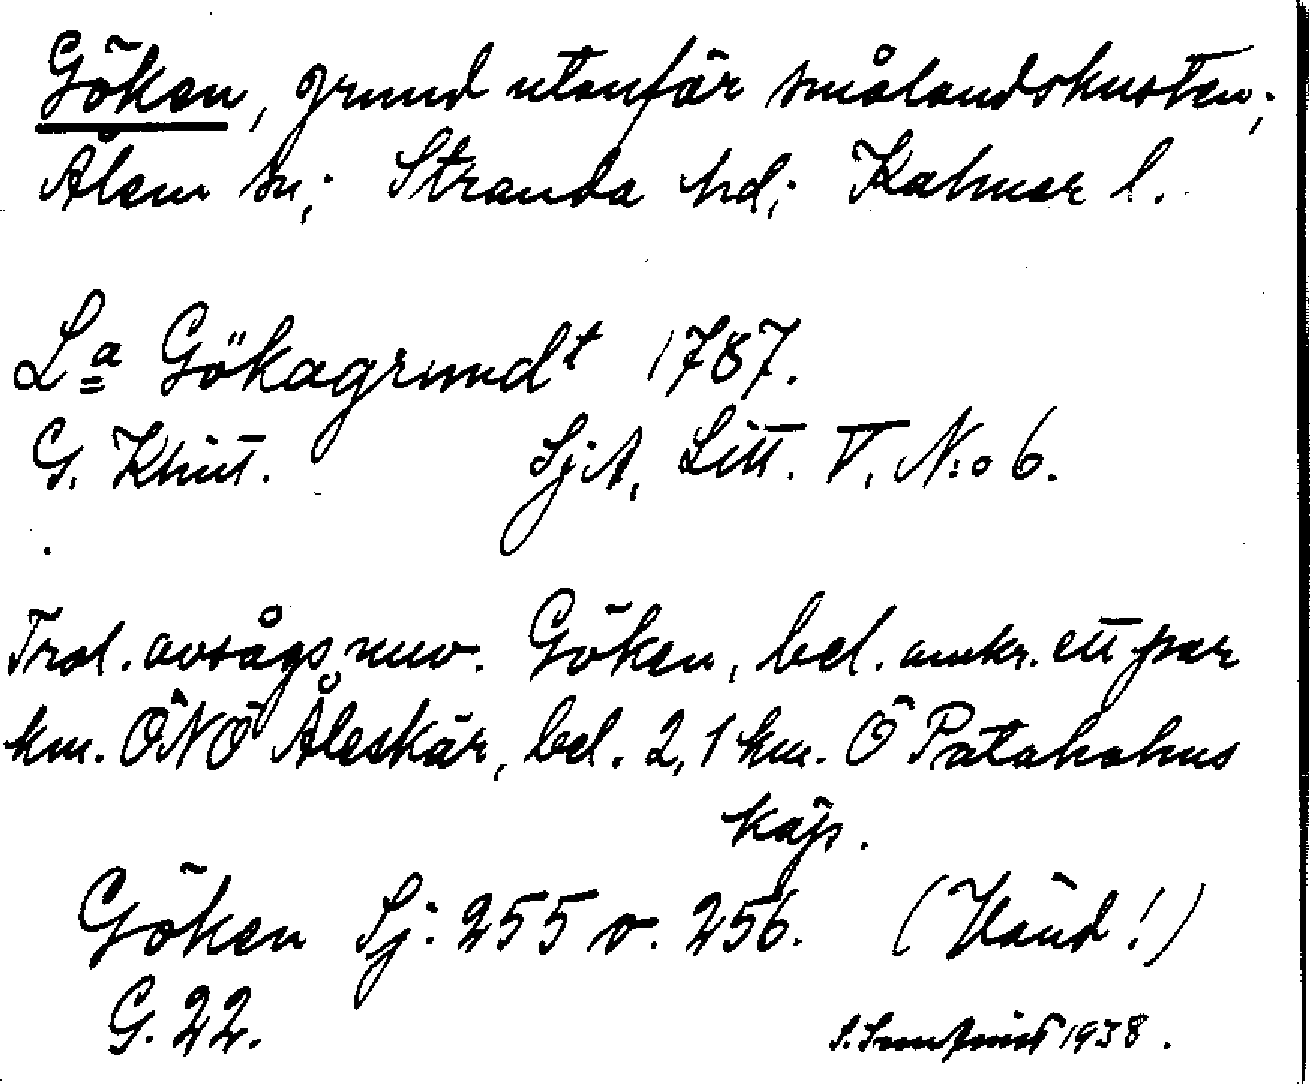 Göken, grund utanför smålandskusten;
Ålem sn; Stranda hd; Kalmar l.
La Gökagrundt 1787.
G. Klint. SjA, Litt. V. N:o 6.
Trol. avsågs nuv. Göken, bel. omkr. ett par
km. ÖNÖ Åleskär, bel. 2,1 km. Ö Patahohus
käjs.
Göken Sj: 255 o. 256. (Vänd!)
G. 22.
1938.